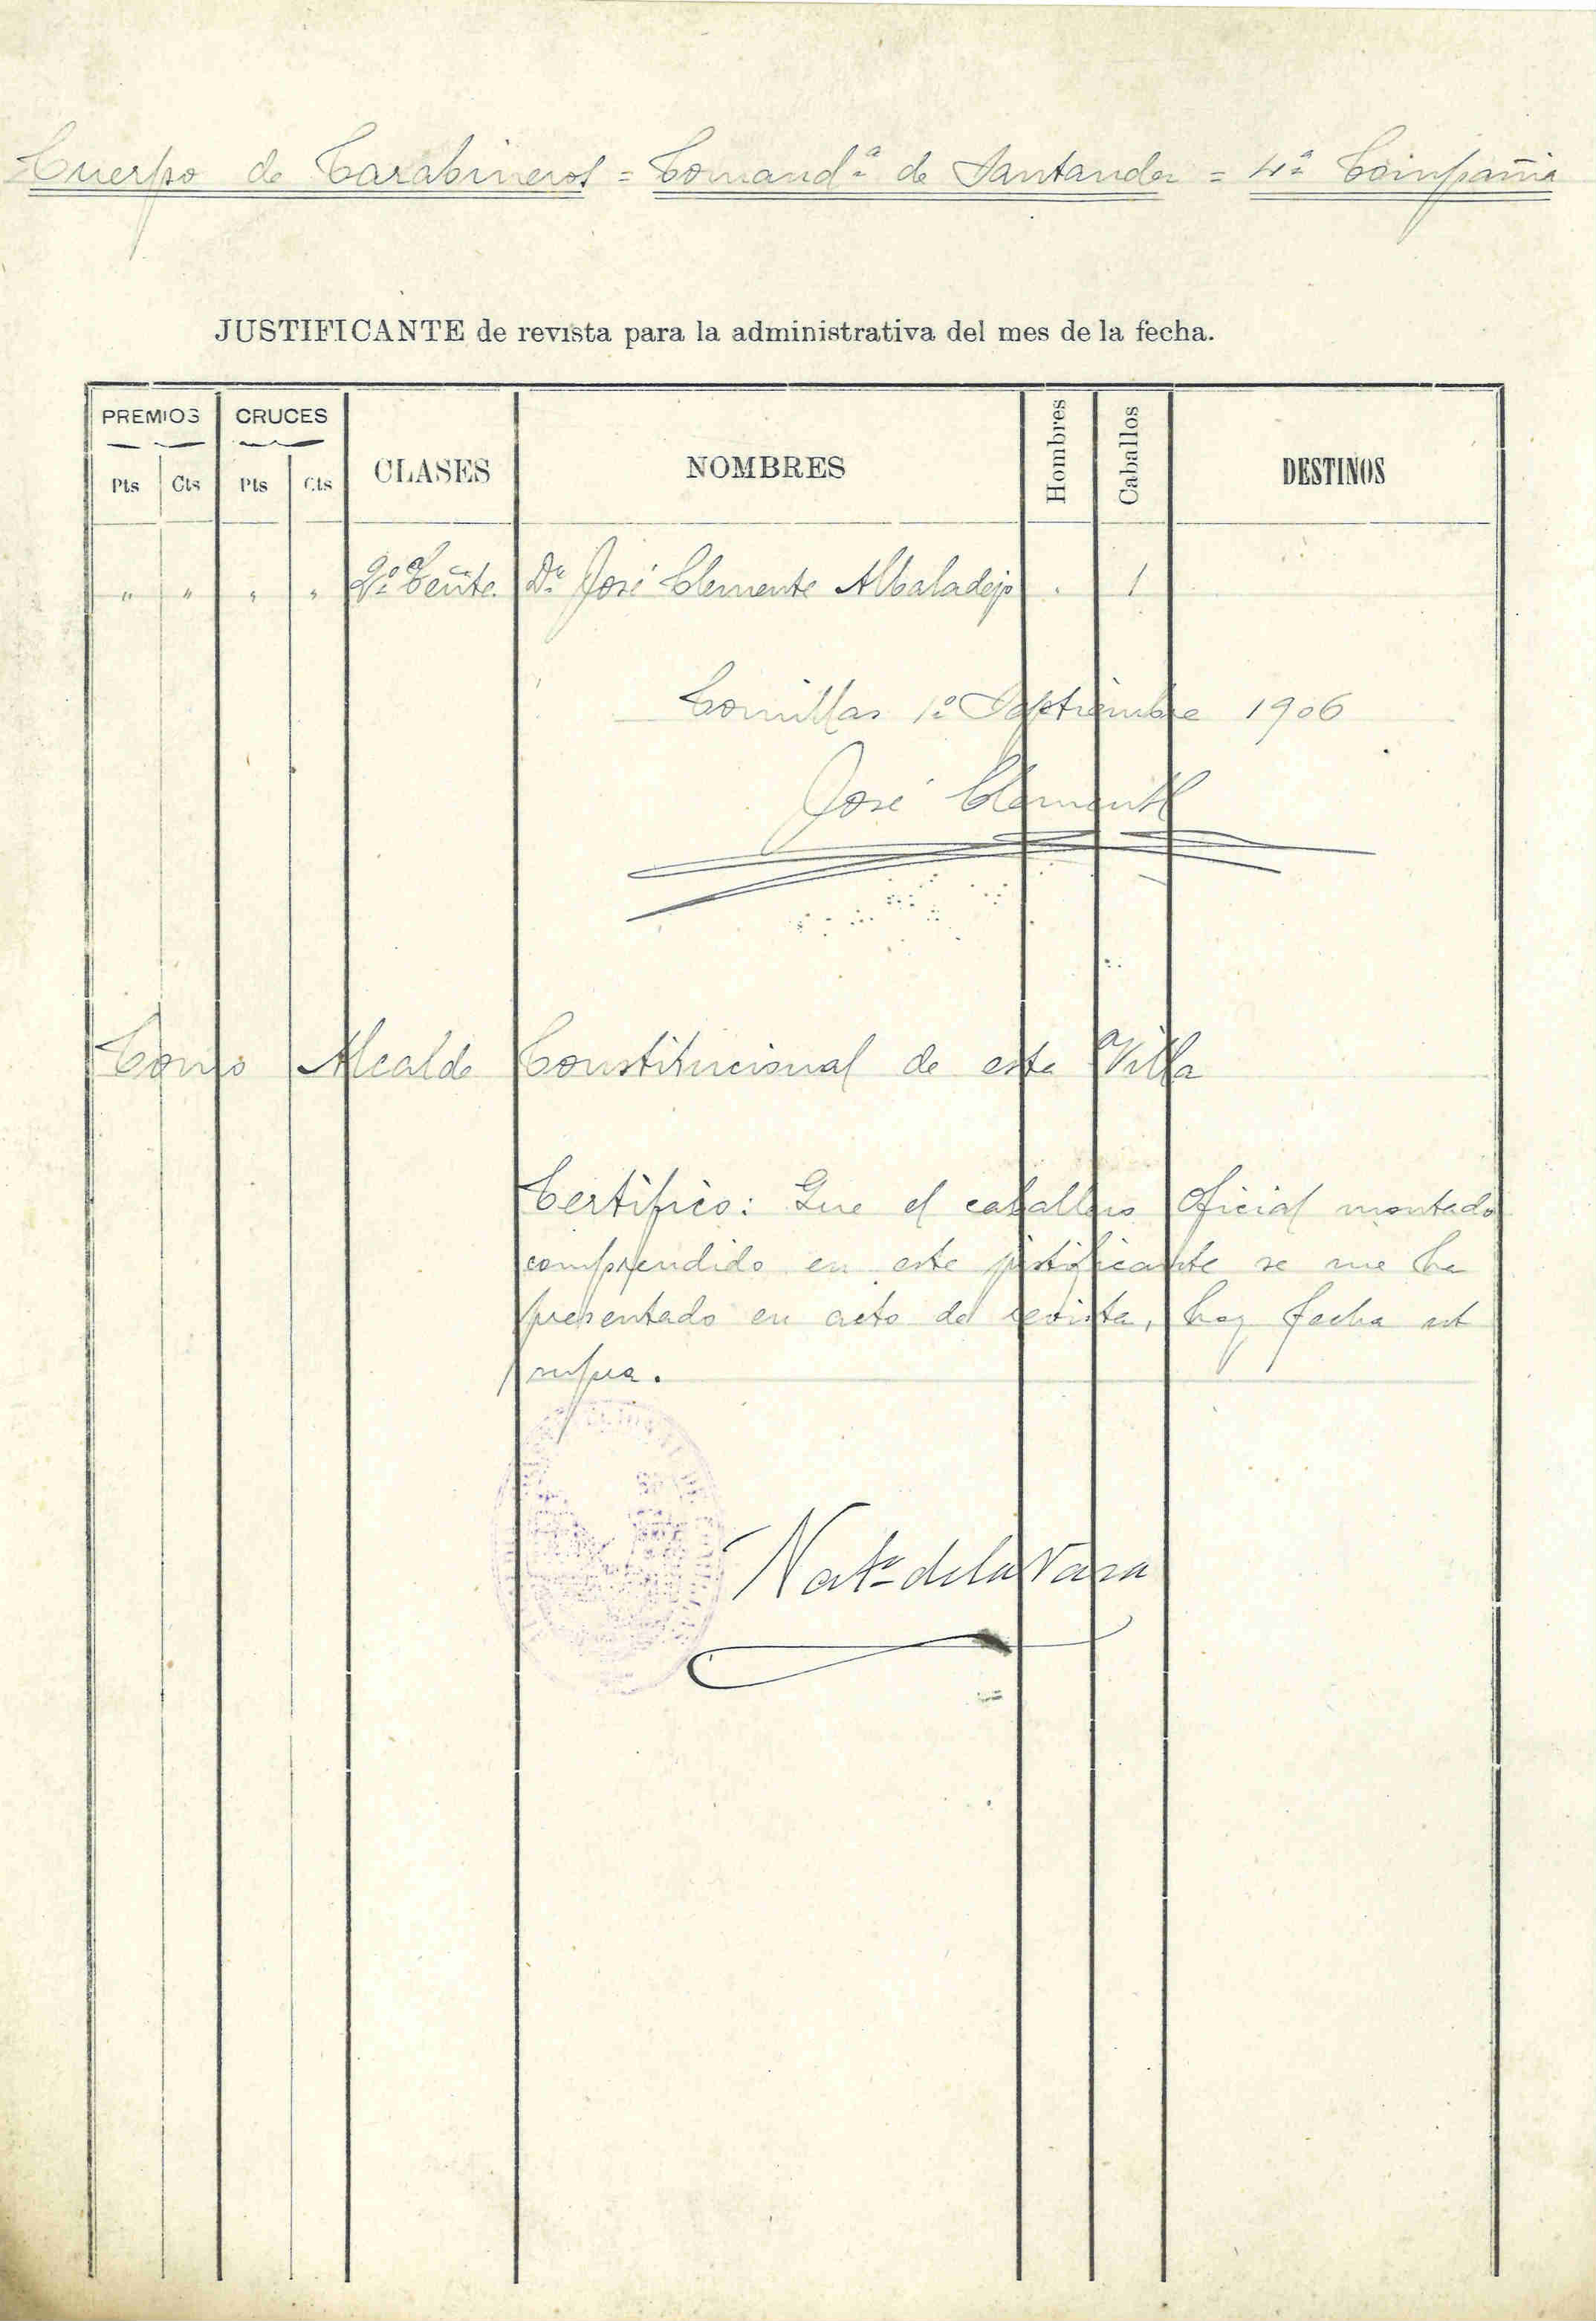 Cuerpo de Carabineros = Comand.ª de Santander = 4.ª Compañia
JUSTIFICANTE de revista para la administrativa del mes de la fecha.
PREMIOS CRUCES CLASES NOMBRES Hombres Caballos DESTINOS
Pts Cts Pts Cts
" " " " 2º Teñte. Dn José Clemente Albaladejo . 1
Comillas 1º Septiembre 1906
José Clemente
Como Alcalde Constitucional de esta Villa
Certifico: Que el caballero Oficial montado
comprendido en este justificante se me ha
presentado en acto de revista, hoy fecha ut
supra.
de la Vara